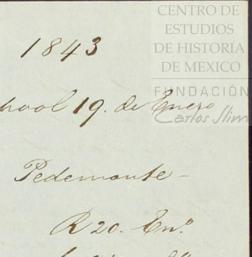 CENTRO DE
ESTUDIOS
DE HISTORIA
DE MEXICO
FUNDACIÓN
Carlos Slim
1843
hool 19. de Enero
Pedemonte-
R 20. En.º